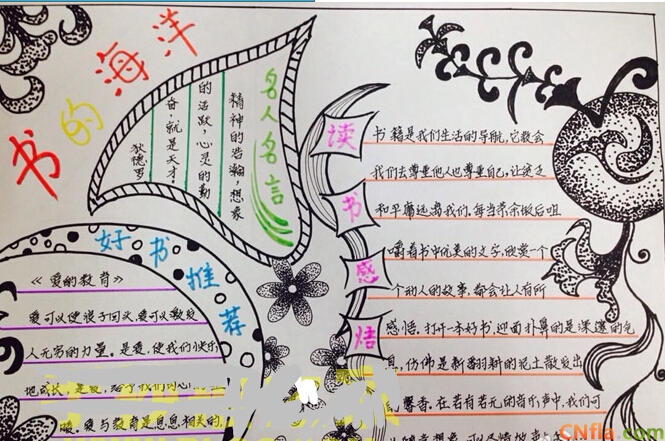 书的海洋
名人名言
精神的浩瀚,想象
的活跃,心灵的勤
奋,就是天才。
狄德罗
好书推荐
《爱的教育》
爱可以使浪子回头,爱可以激发
人无穷的力量。是爱,使我们快乐
地成长,是爱,给了我们内心
暖,爱与教育是息息相关的,
读书感悟
书籍是我们生活的导航,它教会
我们去尊重他人也尊重自己,让
和平庸远离我们。每当茶余饭后咀
嚼着书中优美的文字,欣赏一个
个动人的故事,都会让人有所
感悟,打开一本好书,迎面扑鼻的是深邃的
息,仿佛是新翻新的泥土散发出
馨香。在若有若无的音乐声中,我们可
CNfla.com